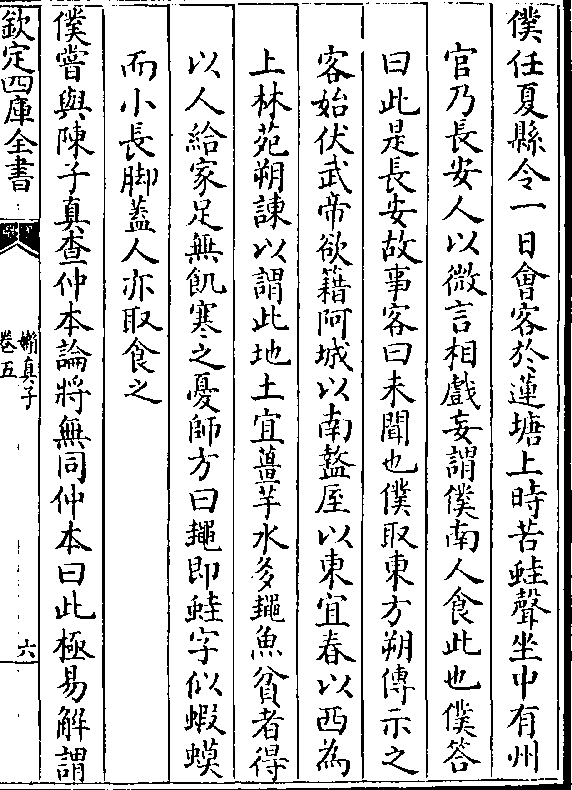 僕任夏縣令一日會客於蓮塘上時苦蛙聲坐中有州
官乃長安人以微言相戲妄謂僕南人食此也僕答
曰此是長安故事客曰未聞也僕取東方朔傳示之
客始伏武帝欲籍阿城以南盩厔以東宜春以西為
上林苑朔諫以謂此地土宜薑芋水多鼃魚貧者得
以人給家足無飢寒之憂師方曰鼃即蛙字似蝦蟆
而小長脚蓋人亦取食之
僕嘗與陳子真查仲本論將無同仲本曰此極易解謂
欽定四庫全書
嬾真子
卷五
六